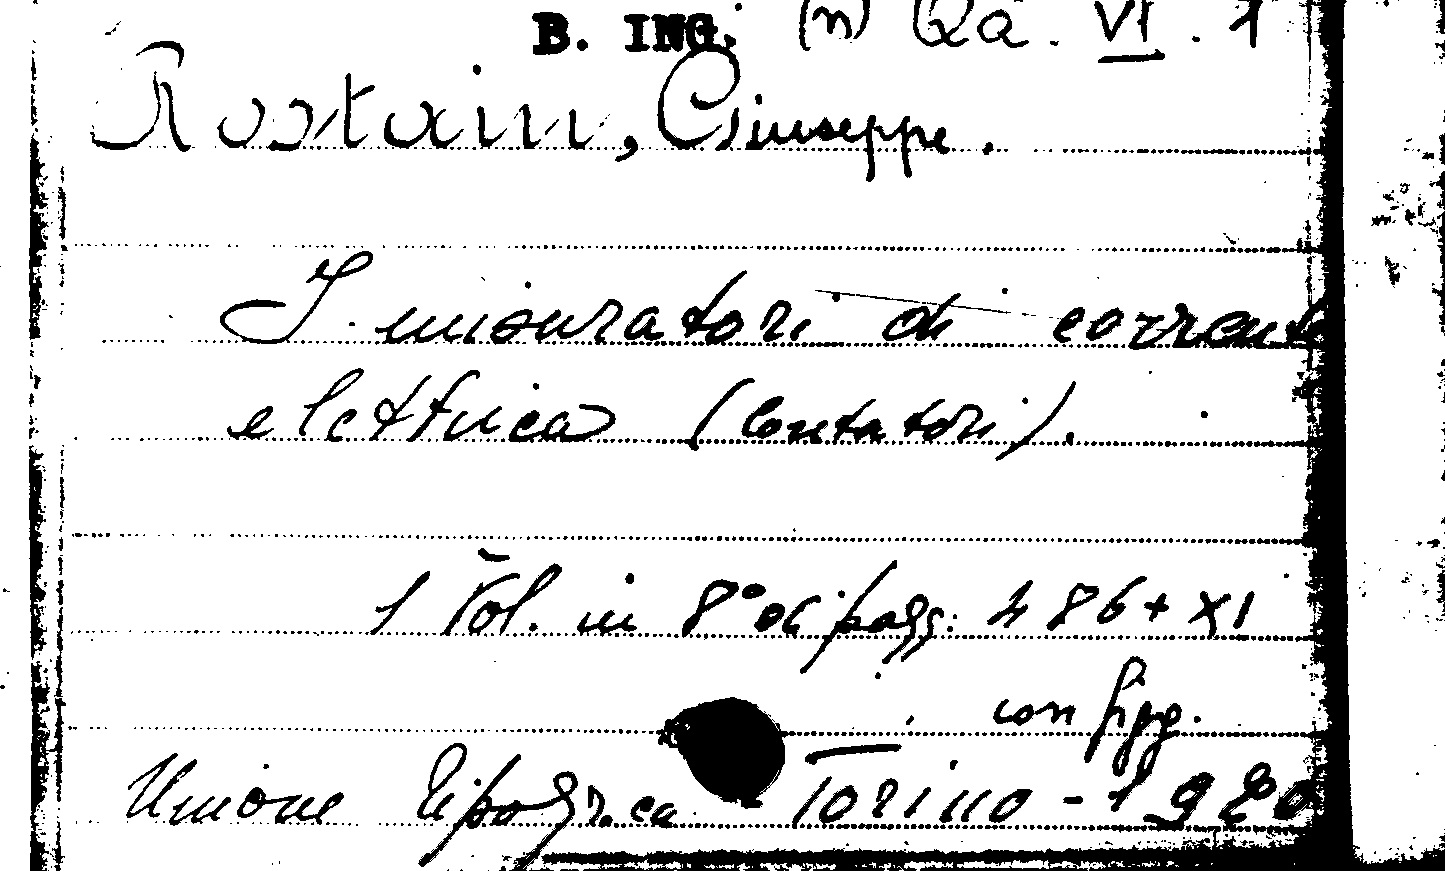 B. ING. (n) Qa. VI. 1
Rostain, Giuseppe.
I misuratori di corrente
elettrica (Contatori).
1 Vol. in 8° di pagg. 486 + XI
con figg.
Unione Tipogr.ca - Torino - 1920